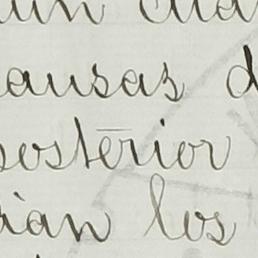 ausas d
posterior
ian los